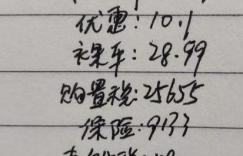 优惠:10.1
裸车:28.99
购置税:25655
保险:9133